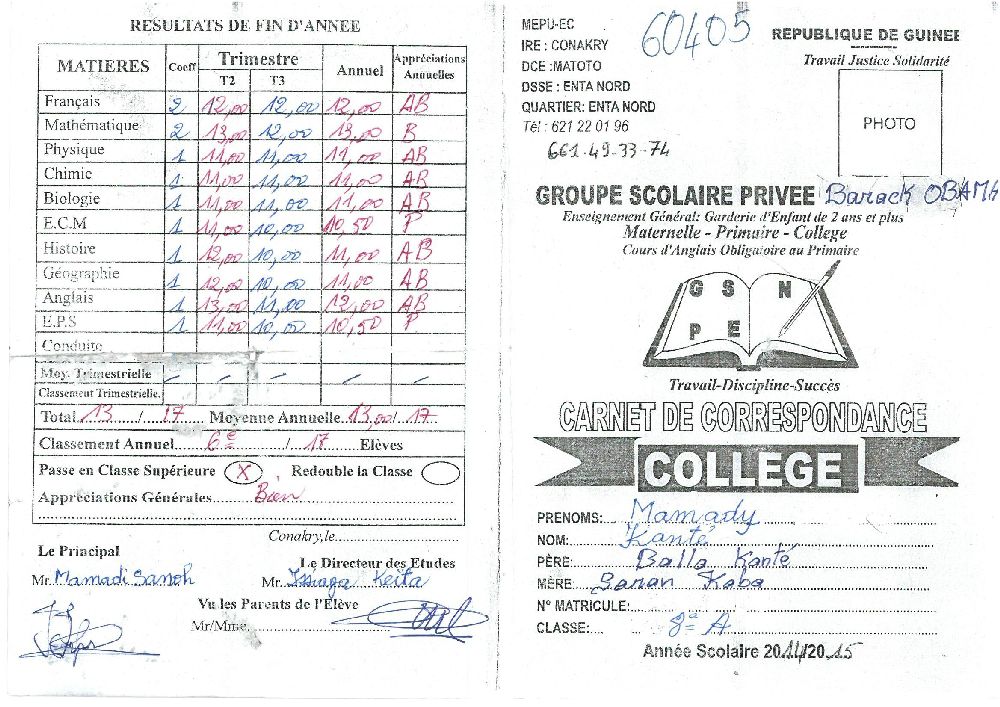 RESULTATS DE FIN D'ANNEE
MATIERES Coeff Trimestre Annuel Appréciations Annuelles
T2 T3
Français 2 12,00 12,00 12,00 AB
Mathématique 2 13,00 12,00 13,00 B
Physique 1 11,00 11,00 11,00 AB
Chimie 1 11,00 11,00 11,00 AB
Biologie 1 11,00 11,00 11,00 AB
E.C.M 1 11,00 10,00 10,50 P
Histoire 1 12,00 10,00 11,00 AB
Géographie 1 12,00 10,00 11,00 AB
Anglais 1 13,00 11,00 12,00 AB
E.P.S 1 11,00 10,00 10,50 P
Conduite
Moy. Trimestrielle
Classement Trimestrielle.
Total 13 / 17 Moyenne Annuelle 13,00/ 17
Classement Annuel 6e / 17 Elèves
Passe en Classe Supérieure X , Redouble la Classe
Appréciations Générales Bien
Conakry,le
Le Principal Le Directeur des Etudes
Mr. Mamadi Sanoh Mr. Issiaga Keita
Vu les Parents de l'Elève
Mr/Mme.
MEPU-EC
IRE : CONAKRY
DCE :MATOTO
DSSE : ENTA NORD
QUARTIER: ENTA NORD
Tél : 621 22 01 96
661-49-33-74
60405
REPUBLIQUE DE GUINEE
Travail Justice Solidarité
PHOTO
GROUPE SCOLAIRE PRIVEE Barack OBAMA
Enseignement Général: Garderie d'Enfant de 2 ans et plus
Maternelle - Primaire - College
Cours d'Anglais Obligatoire au Primaire
G S N
P E
Travail-Discipline-Succès
CARNET DE CORRESPONDANCE
COLLEGE
PRENOMS: Mamady
NOM: Kanté
PÈRE: Balla Kanté
MÈRE: Saran Kaba
N° MATRICULE:
CLASSE: 8e A
Année Scolaire 2014/2015